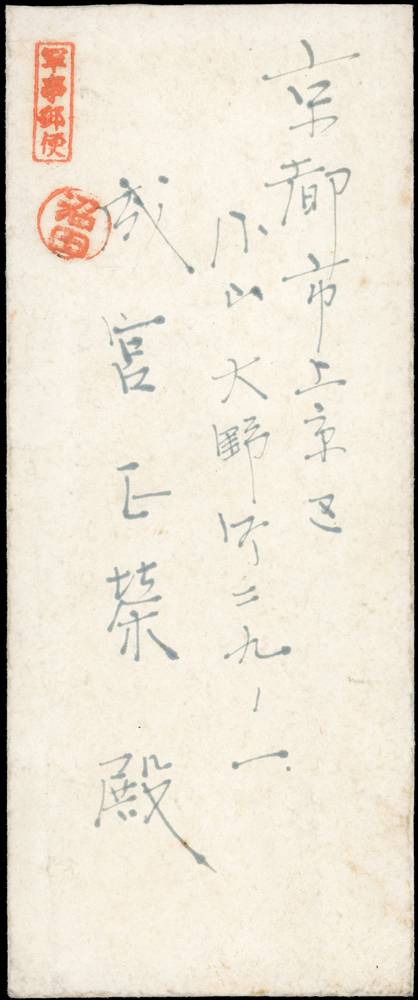 京都市上京区
小山大野町二九ノ一
成宮正榮殿
軍事郵便